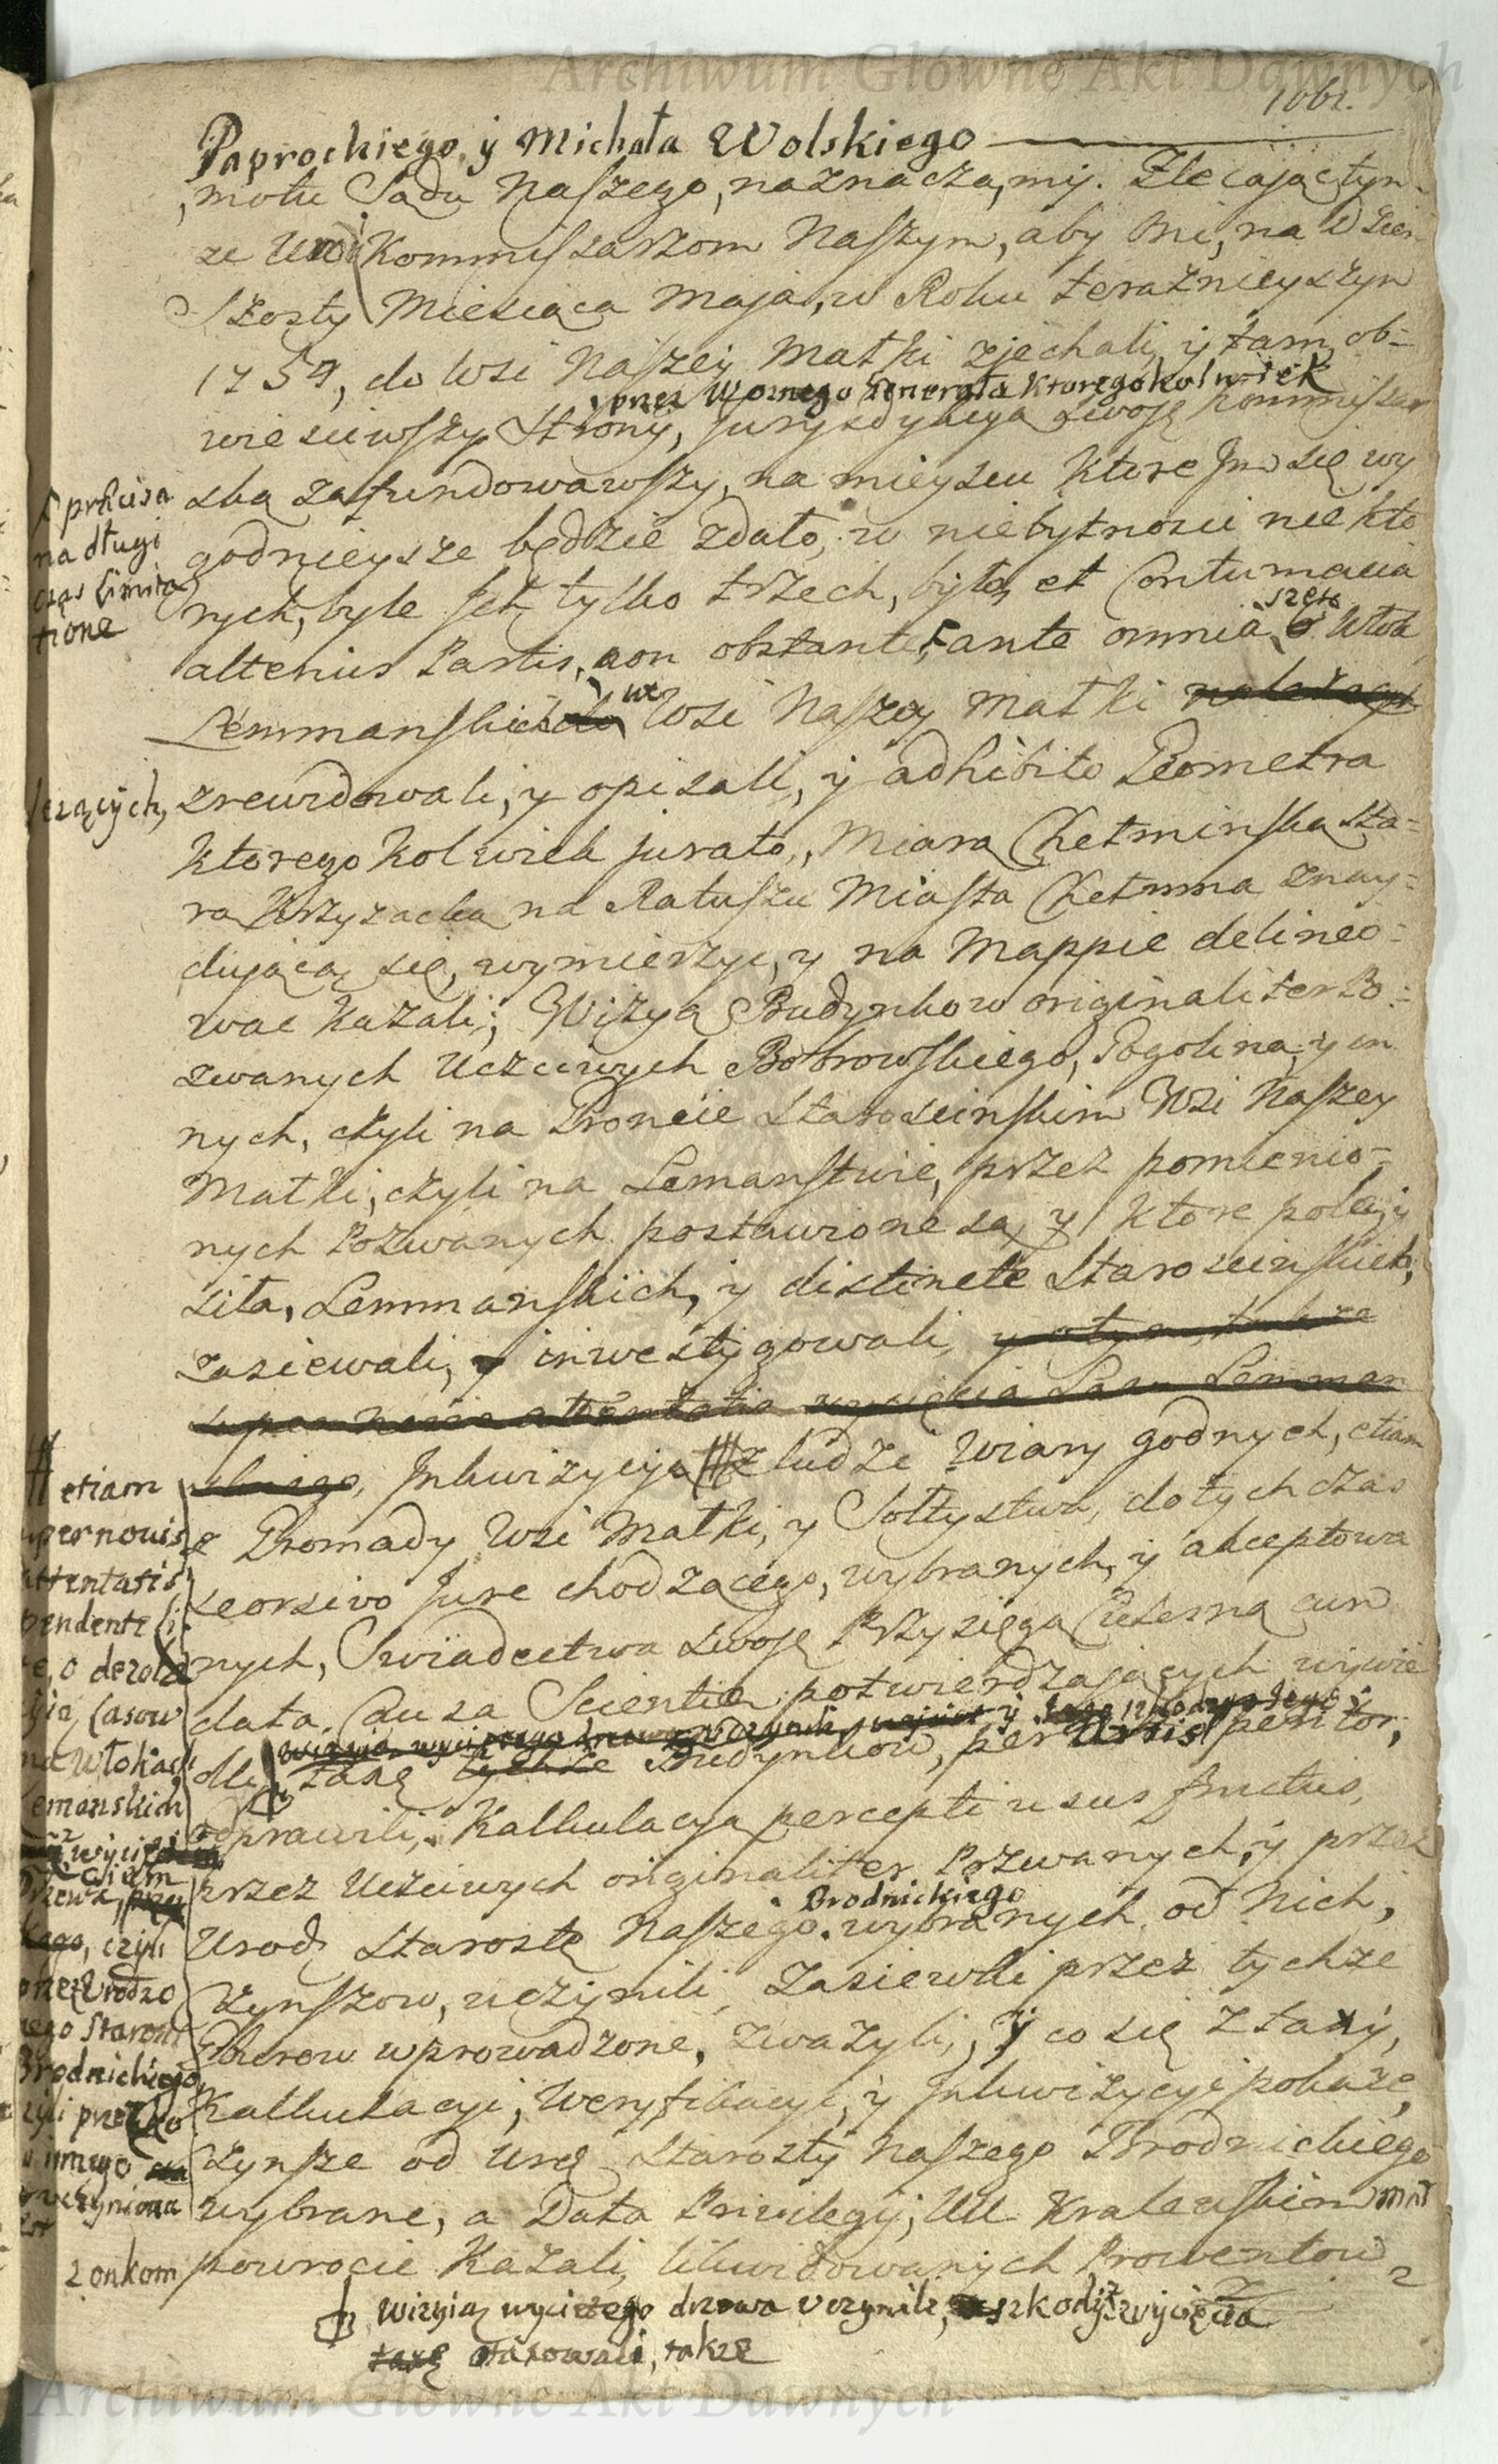 Archiwum Główne Akt Dawnych
106r.
Paprockiego, y Michała Wolskiego
mołu Sądu Naszego, naznaczamy. Zlecając tym-
że Kommissarzom Naszym, aby Oni, na Dzien
Szosty Miesiąca Maja, w Roku teraznieyszym
1754, do Wsi Naszey Matki zjechali, y tam ob-
przez Woznego Generała ktoregokolwiek
wiesciwszy Strony, Jurysdykcyą Swoję Kommissar
ską zafundowawszy, na mieyscu ktore Jm się wy
godnieysze będzie zdało, w niebytnosci niekto
rych, byle Jch tylko trzech, było, et Contumacia
szesc
alterius Partis, non obstante, ante omnia 6 Włok
we
Lemmanskich do Wsi Naszey Matki
zrewidowali, y opisali, y adhibito Geometra
ktoregokolwiek jurato, Miarą Chełminską sta-
rą Krzyzacką na Ratuszu Miasta Chełmna znay-
dującą się, wymierzyc, y na Mappie delineo-
wac kazali; Wizyą Budynkow originaliter Po-
zwanych Uczciwych Bobrowskiego, Pogolina, y in
nych, czyli na Gruncie Staroscinskim Wsi Naszey
Matki, czyli na Lemanstwie, przez pomienio-
nych Pozwanych postawione są, y ktore pola, y
siła, Lemmanskich, y distincte Staroscinskich,
zasiewali, y inwestygowali,
Jnkwizycyą # z ludzi wiary godnych, etiam
z Gromady Wsi Matki, y Sołtystwa, dotychczas
seorsivo Jure chodzącego, wybranych, y akceptowa
nych, Swiadectwa Swoje Przysięgą Cielesną cum
data Causa Scientiæ potwierdzających wywie
dli, Taxę Budynkow, per Artis peritos,
odprawili, Kalkulacyą percepti usus fructus,
przez Uczciwych originaliter Pozwanych, y przez
Brodnickiego
Urodz Starostę Naszego wybranych od Nich,
Czynszow, uczynili, Zasiewki przez tychze
Gburow wprowadzone, zwazyli, y co się z taxy,
Kalkulacyi, Weryfikacyi, y Jnkwizycyi pokaze,
Czynsze od Urodz Starosty Naszego Brodnickiego
wybrane, a Data Privilegij, UU Kralewskim mał
zonkom powrocic Kazali, likwidowanych Prowentow
Wizyią wyciętego drzewa uczynili, szkody z wycięcia
taxę otaxowali, takze
prócisa
na długi
czas limita
tione
lezących,
# etiam
super novis
attentatis
pendente li-
te, o dezola
cyią lasow
na włokach
Lemanskich
wycię
ciem
drzewa,
czyli
przez Urodzo
nego Starostę
Brodnickiego,
czyli przez ko
go innego
uczyniona
Archiwum Główne Akt Dawnych